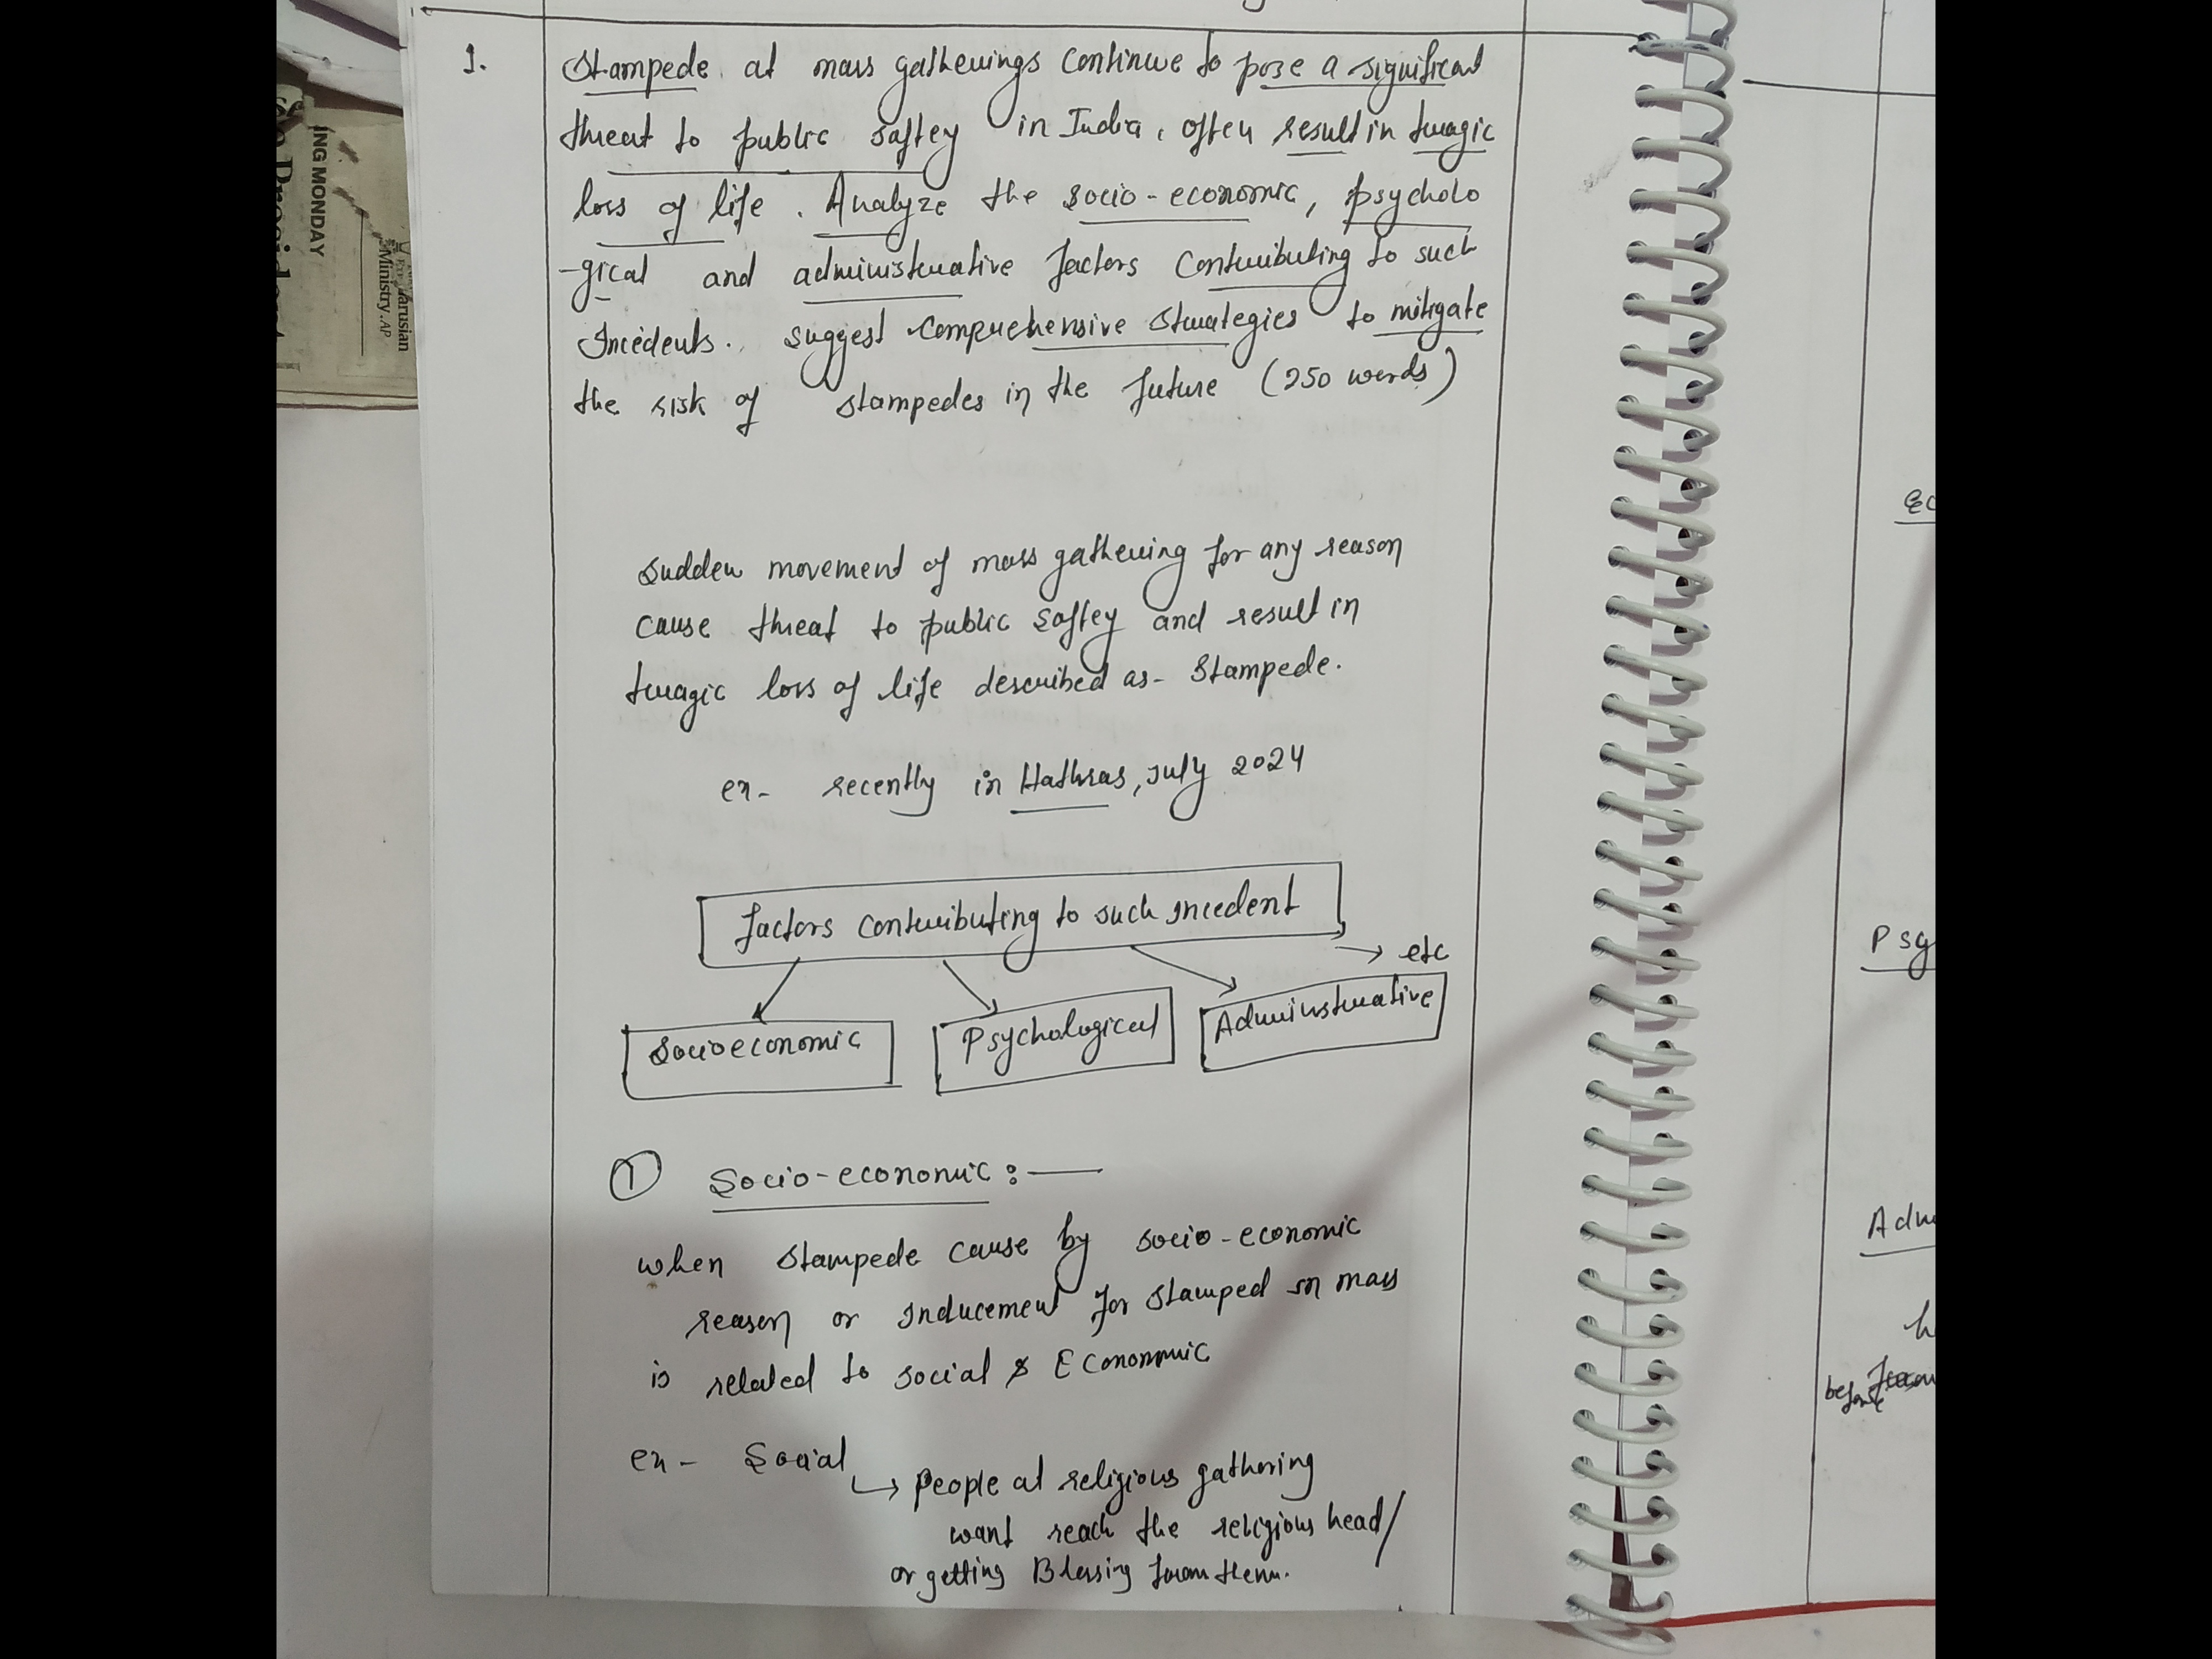 ING MONDAY
arusian
Ministry. AP
1.
Stampede at mass gatherings continue to pose a significant
threat to public saftey in India, often result in tragic
loss of life. Analyze the socio-economic, psycholo
-gical and administrative factors contributing to such
Incedents. suggest comprehensive strategies to mitigate
the risk of stampedes in the future (250 words)
Sudden movement of mass gathering for any reason
cause threat to public saftey and result in
tragic loss of life described as- Stampede.
ex- recently in Hathras, July 2024
factors contributing to such incedent
→ etc
Socioeconomic
Psychological
Adminstrative
① Socio-economic :—
when stampede cause by socio-economic
reason or inducement for stamped in mass
is related to social & Economic
ex- Social
↳ People at religious gathering
want reach the religious head/
or getting Blessing from them.
Psy
before